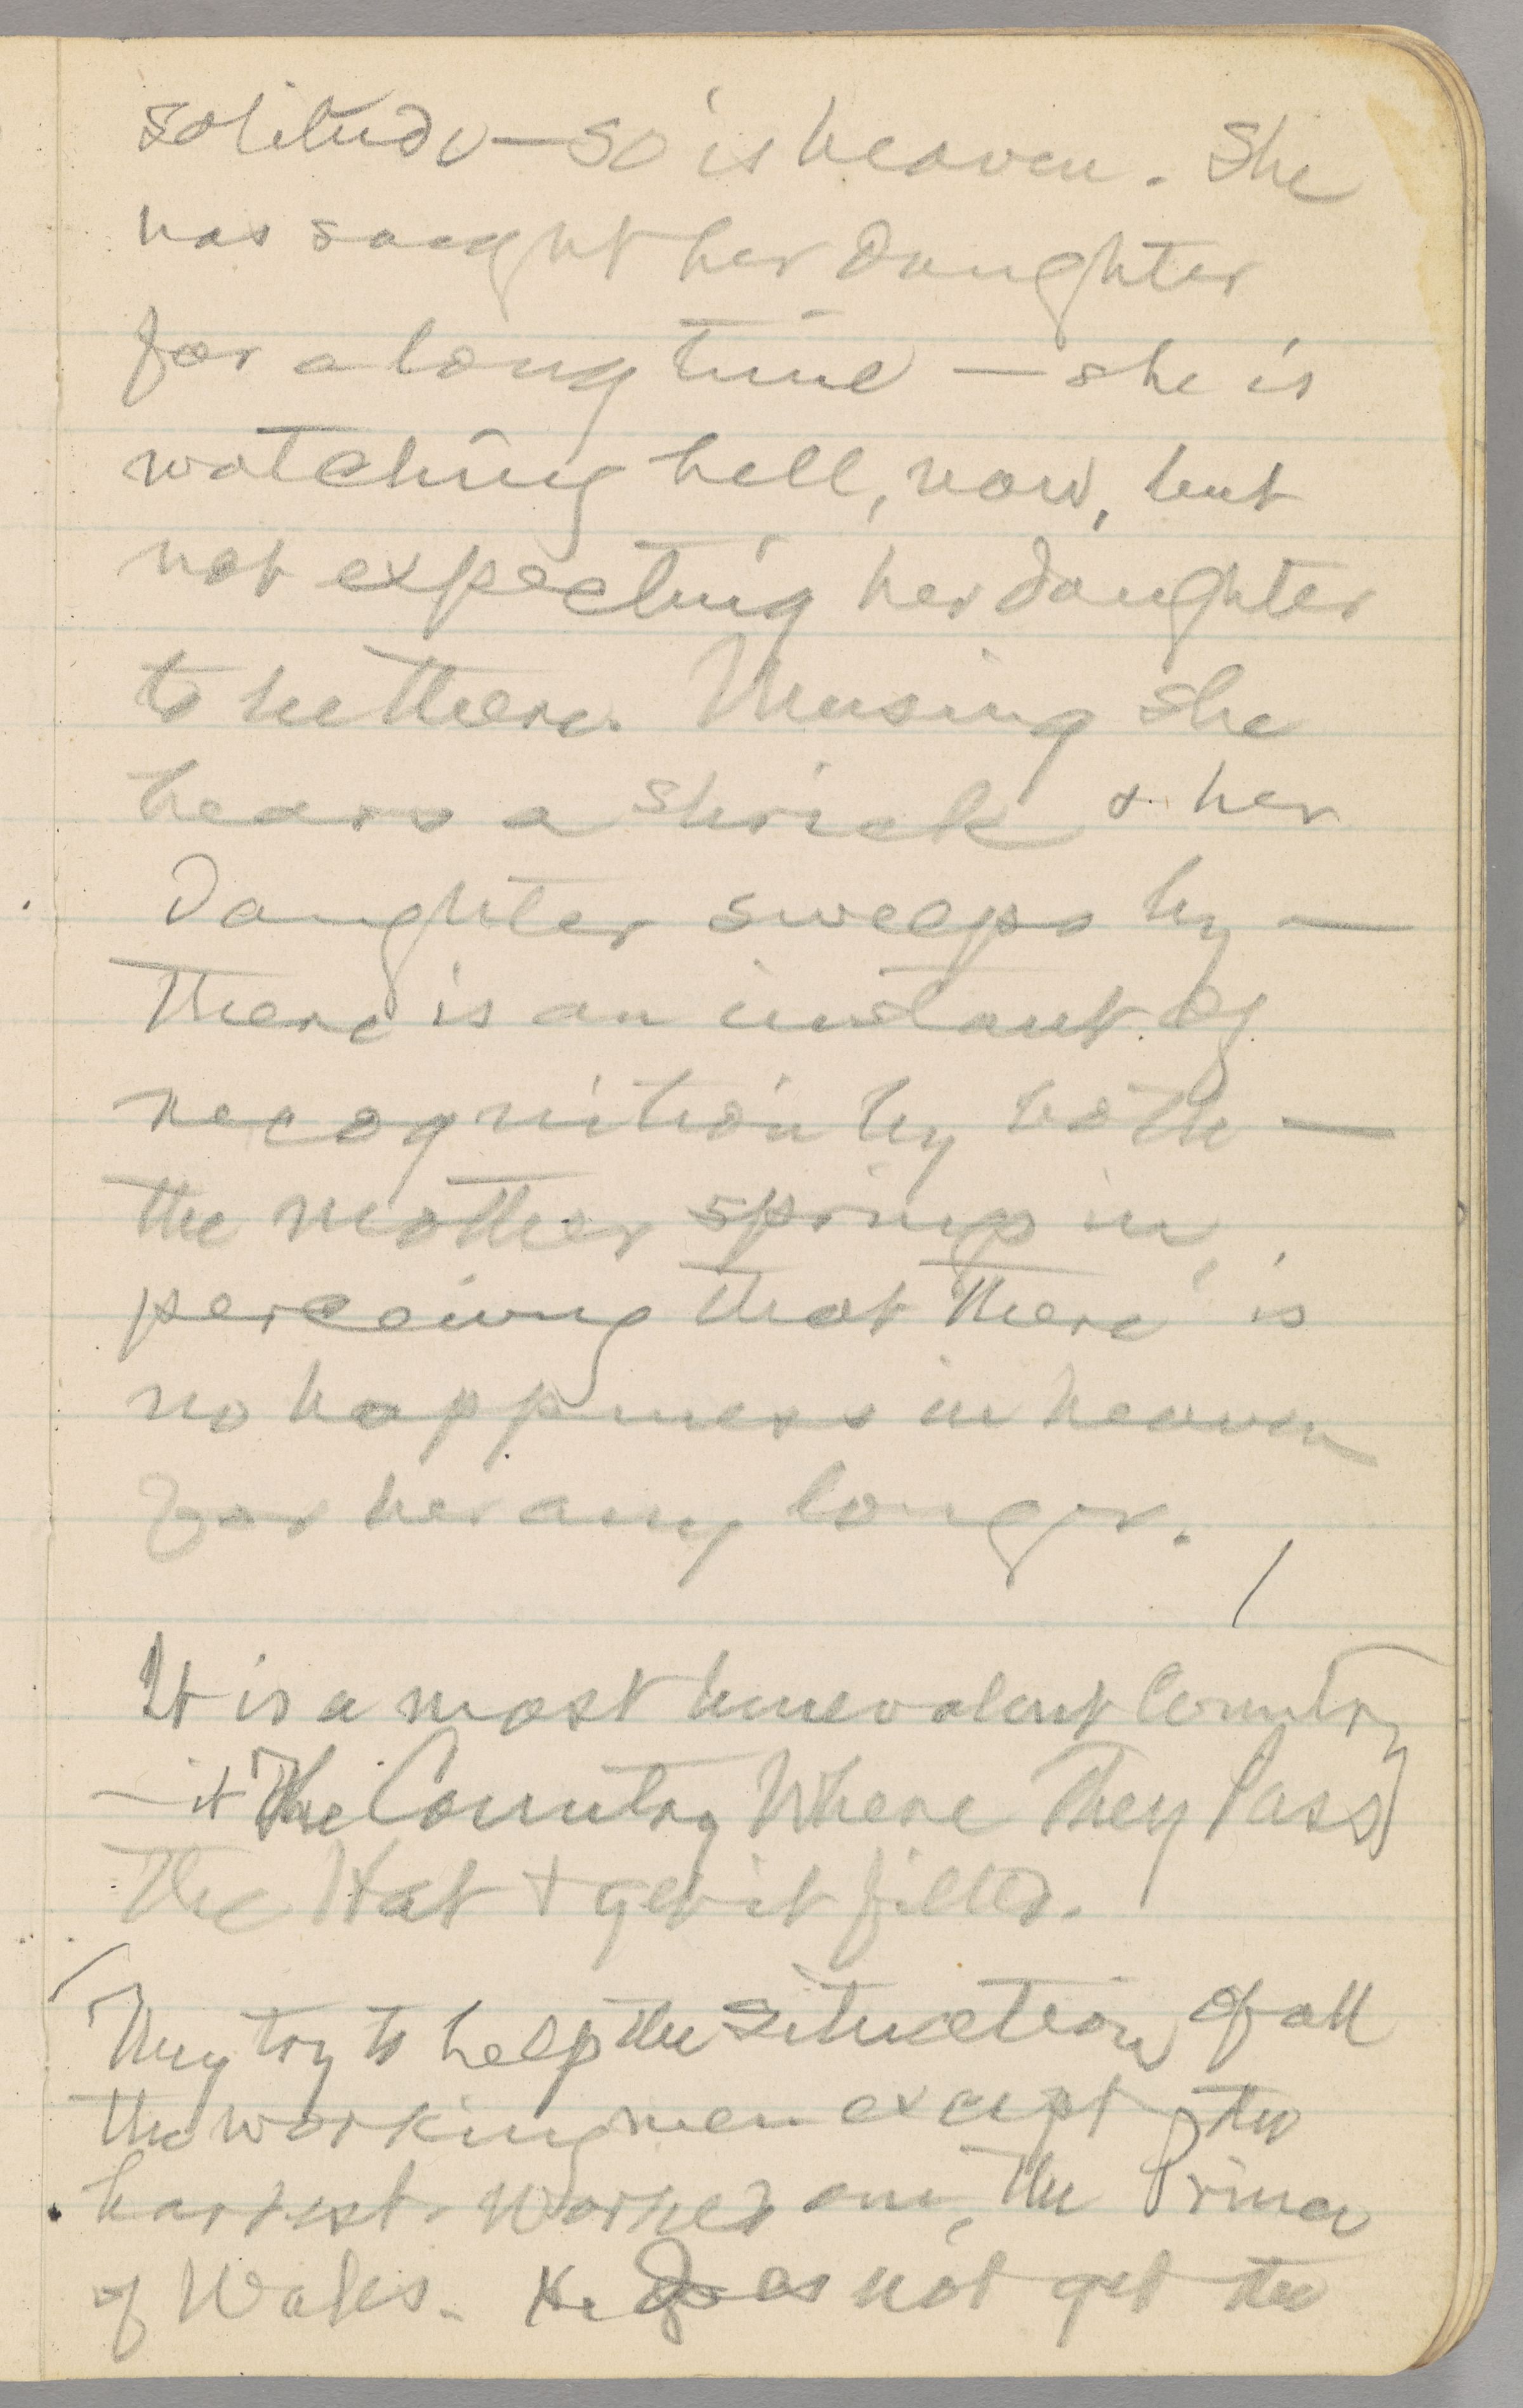 solitude—so is heaven. She
has sought her daughter
for a long time — she is
watching hell, now, but
not expecting her daughter
to be there. Musing she
hears a shriek & her
daughter sweeps by —
there is an instant of
recognition by both —
the mother springs in,
perceiving that there is
no happiness in heaven
for her any longer.
It is a most benevolent Country
— it The Country Where They Pass
The Hat + get it filled.
They try to help the situation of all
the workingmen except the
hardest-worked one, the Prince
of Wales. He does not get the